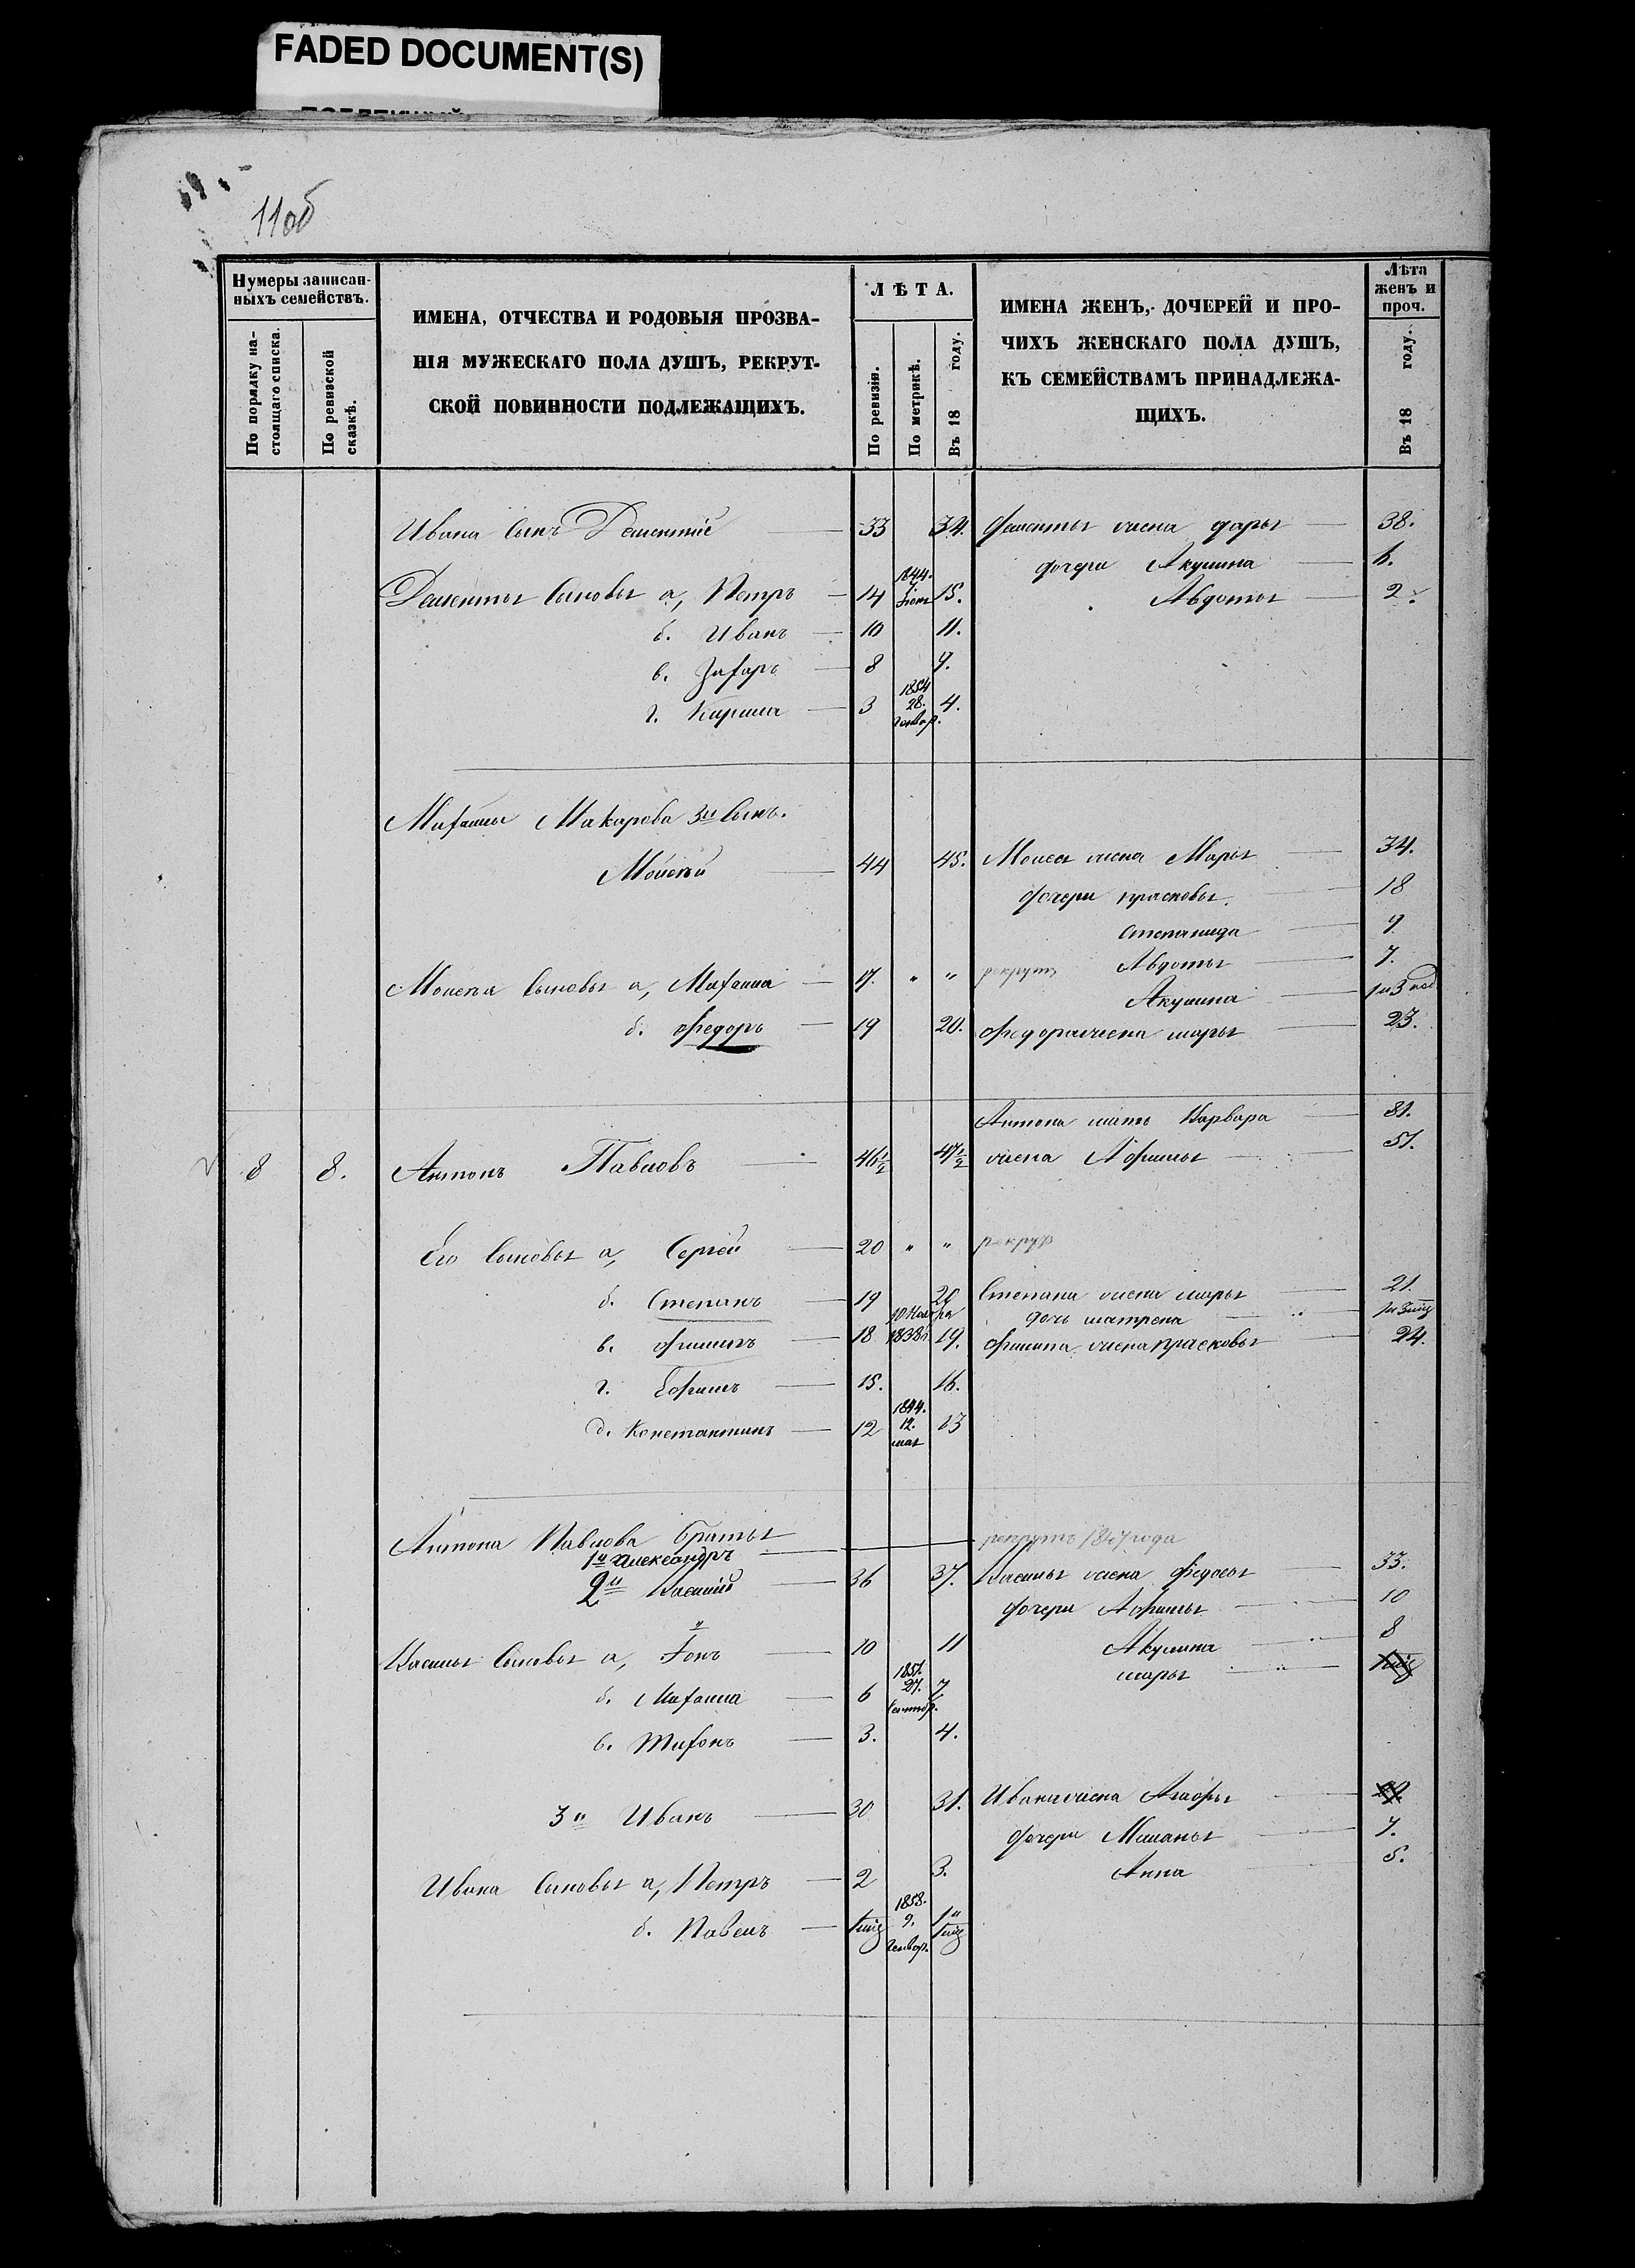 FADED DOCUMENT(S)
11об
Нумеры записан-
ныхъ семействъ.
По порядку на-
стоящаго списка.
По ревизской
сказкѣ.
ИМЕНА, ОТЧЕСТВА И РОДОВЫЯ ПРОЗВА-
НІЯ МУЖЕСКАГО ПОЛА ДУШЪ, РЕКРУТ-
СКОЙ ПОВИННОСТИ ПОДЛЕЖАЩИХЪ.
ЛѢТА.
По ревизіи.
По метрикѣ.
Въ 18 году.
ИМЕНА ЖЕНЪ, ДОЧЕРЕЙ И ПРО-
ЧИХЪ ЖЕНСКАГО ПОЛА ДУШЪ,
КЪ СЕМЕЙСТВАМЪ ПРИНАДЛЕЖА-
ЩИХЪ.
Лѣта
женъ и
проч.
Въ 18 году.
Ивана сынъ Дементій 33 34. Дементья жена Дарья 38.
дочери Акулина 6.
Дементья сыновья а, Петръ 14 1844. 15. Авдотья 2.
б. Иванъ 10 11.
в. Захаръ 8 9.
г. Кирила 3 1854 28. Генвар. 4.
Михаилы Макарова 3й сынъ.
Мойсей 44 45. Моисея жена Марья 34.
дочери Прасковья 18
Степанида 9
Авдотья 7.
Моисея сыновья а, Михаила 17. " " рекрутъ
Акулина
б. Федоръ 19 20. Федора жена Марья 23.
Антона мать Варвара 81.
8 8. Антонъ Павловъ 46½ 47½ жена Афимья 51.
Его сыновья а, Сергей 20 " " рекрут
б. Степанъ 19 20 Степана жена Марья 21.
дочь Матрена
в. Филипъ 18 1838 19. Филипа жена Прасковья 24.
г. Ефимъ 15. 16.
д. Константинъ 12 1844. 12. мая 13
Антона Павлова братья
1й Александръ рекрутъ 1847 года
2й Василій 36 37. Василья жена Федосья 33.
дочери Афимья 10
Василья сыновья а, Іонъ 10 11 Акулина 8
Марья
б. Михаила 6 1851. 27. Сентяб. 7.
в. Тифонъ 3. 4.
3й Иванъ 30 31. Ивана жена
дочери Маланья 7.
Анна 5.
Ивана сыновья а, Петръ 2 3.
б. Павелъ 1858. 9. Генвар.